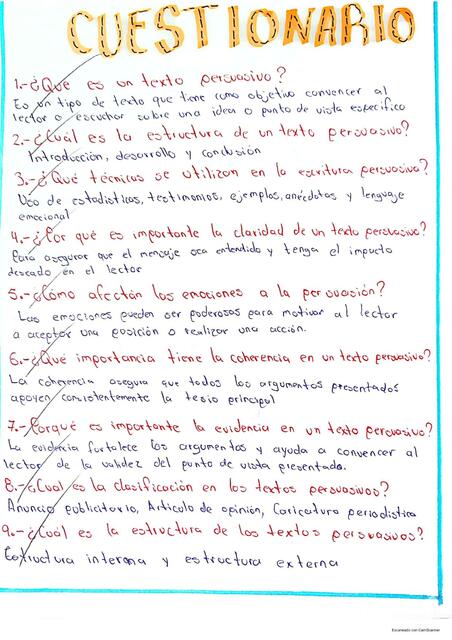 CUESTIONARIO
1.-¿Que es un texto persuasivo?
Es un tipo de texto que tiene como objetivo convencer al
lector o escuchar sobre una idea o punto de vista específico
2.-¿Cuál es la estructura de un texto persuasivo?
Introducción, desarrollo y conclusión
3.-¿Qué técnicas se utilizan en la escritura persuasiva?
Uso de estadísticas, testimonios, ejemplos, anécdotas y lenguaje
emocional
4.-¿Por qué es importante la claridad de un texto persuasivo?
Para asegurar que el mensaje sea entendido y tenga el impacto
deseado en el lector
5.-¿Cómo afectan las emociones a la persuasión?
Las emociones pueden ser poderosas para motivar al lector
a aceptar una posición o realizar una acción.
6.-¿Qué importancia tiene la coherencia en un texto persuasivo?
La coherencia asegura que todos los argumentos presentados
apoyen consistentemente la tesis principal
7.-¿Porqué es importante la evidencia en un texto persuasivo?
La evidencia fortalece los argumentos y ayuda a convencer al
lector de la validez del punto de vista presentado.
8.-¿Cual es la clasificación en los textos persuasivos?
Anuncio publicitario, Artículo de opinión, Caricatura periodística
9.-¿Cuál es la estructura de los textos persuasivos?
Estructura interna y estructura externa
Escaneado con CamScanner